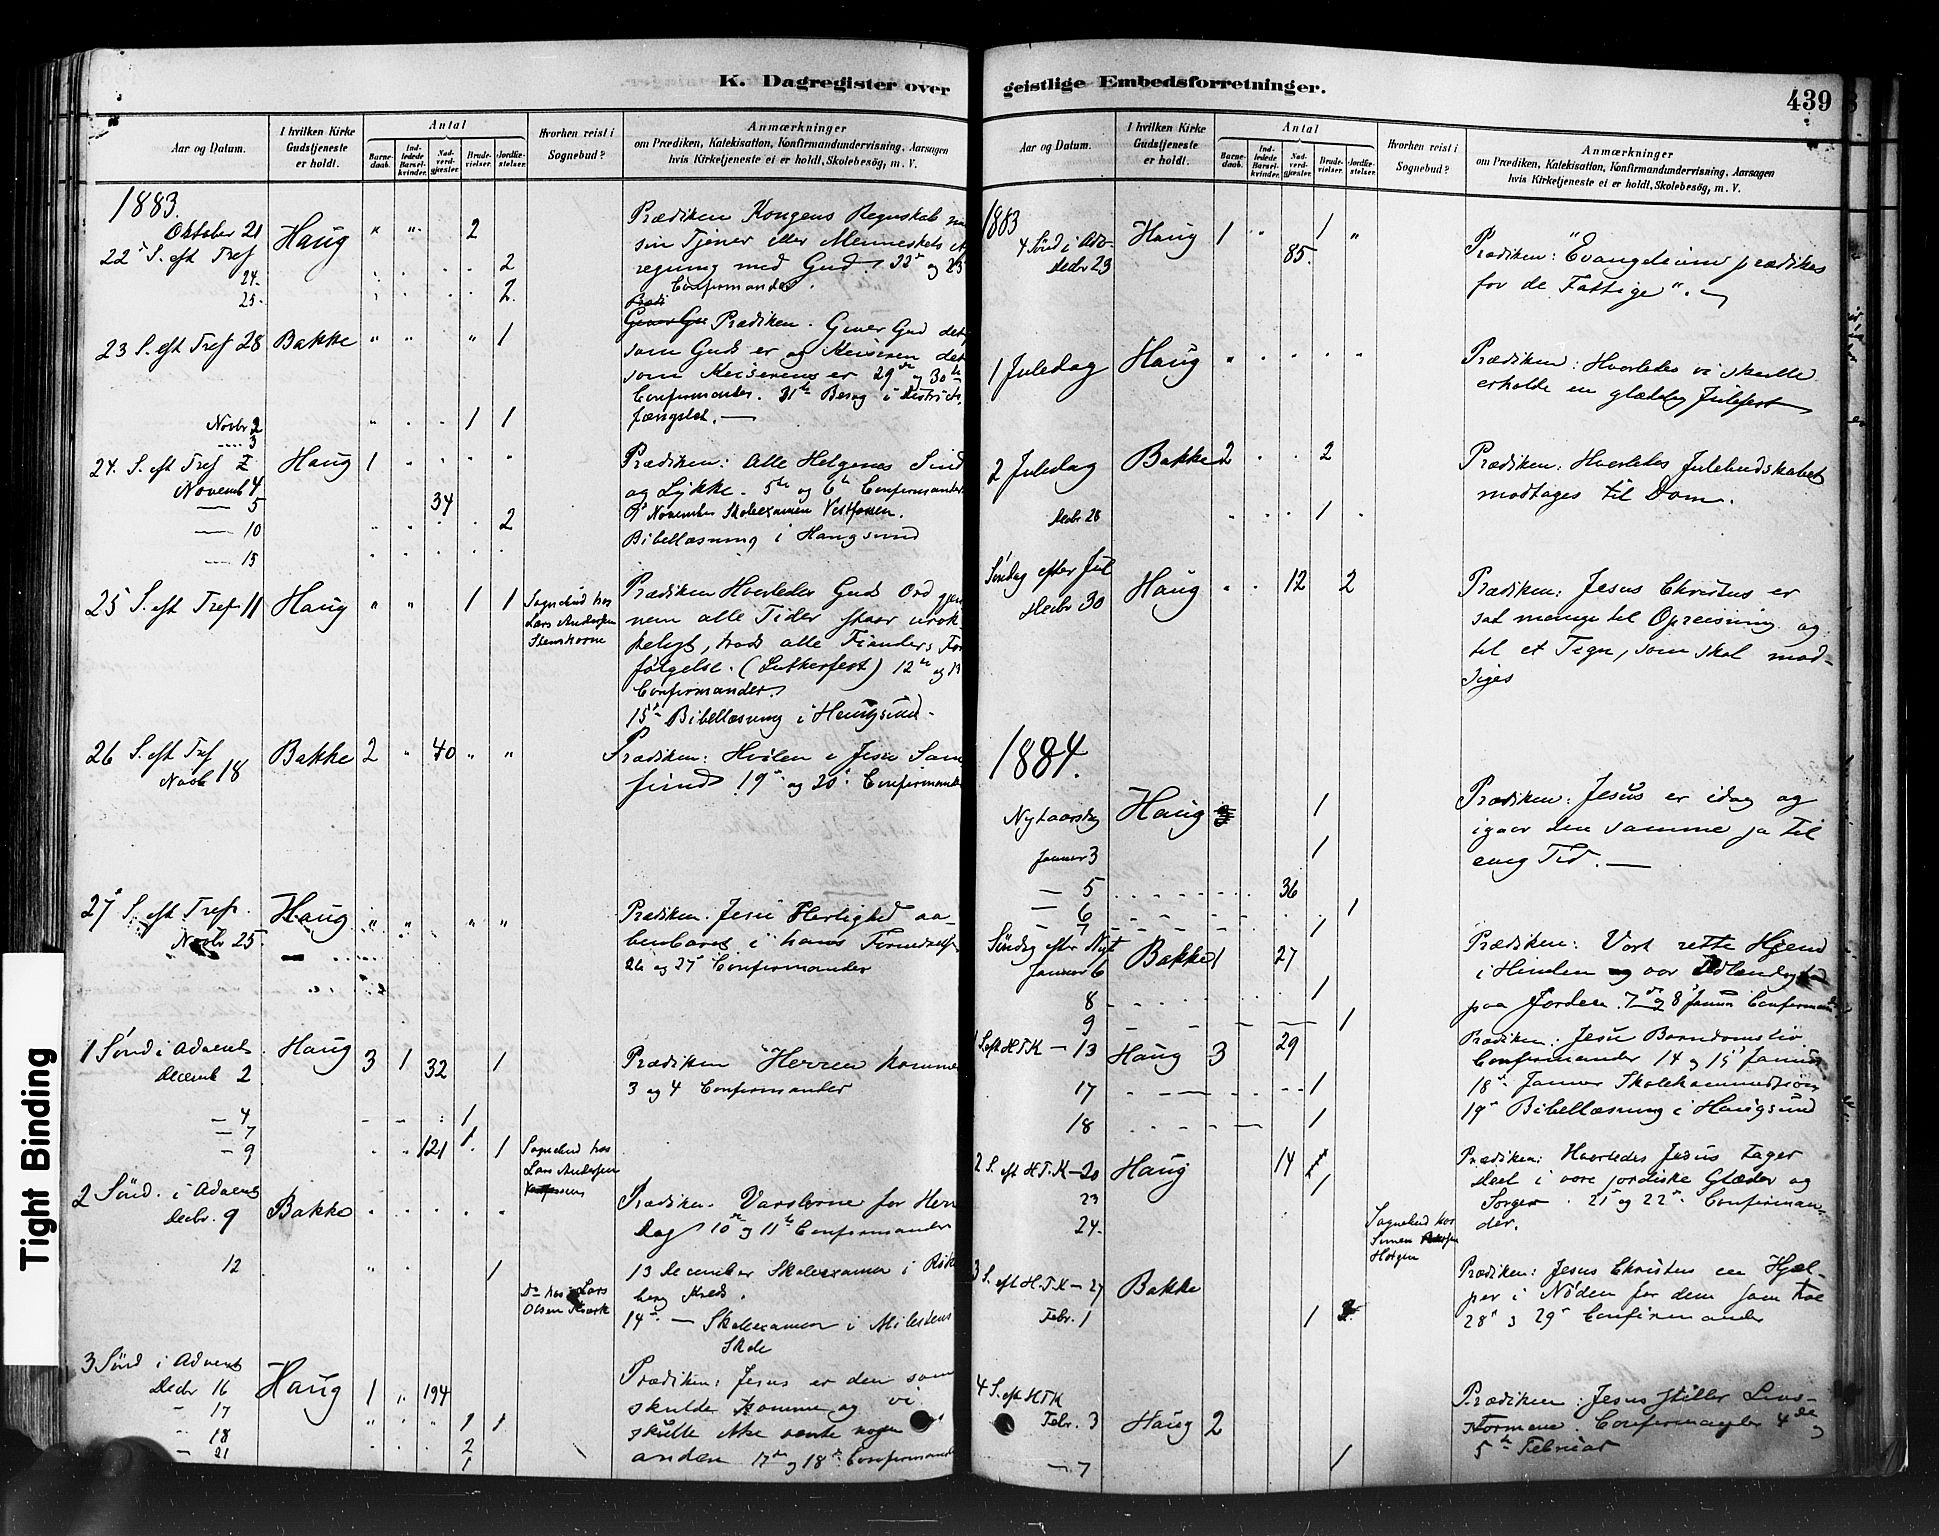 K. Dagregister over
Aar og Datum.
I hvilken Kirke Gudstjeneste er holdt.
Antal
Barnedaab.
Indledede Barselkvinder.
Nadverdgjæster.
Brudevielser.
Jordfæstelser.
Hvorhen reist i Sognebud?
Anmærkninger
om Prædiken, Katekisation, Konfirmandundervisning, Aarsagen
hvis Kirketjeneste ei er holdt, Skolebesög, m. V.
1883.
Oktober 21
22 S. eft Tref Haug " " 2
24. 2
25. 2
Prædiken Kongens Regnskab
sin Tjener eller Menneskets
regning med Gud. 22 og 23
Confirmander.
23 S. eft Tref 28 Bakke " " " 1
Prædiken. Giver Gud det
som Guds er og Keiseren det
som Keiserens er 29 og 30te
Confirmander. 31te Besøg i Distrikts
fængslet. —
Novbr 2 1 1
3
24. S. eft Tref Haug 1
Novemb 4
— 5 34
— 10 2
— 15
Prædiken: Alle Helgenes Sind
og Lykke. 5te og 6te Confirmander
November Skoleexamen Vestfossen.
Bibellæsning i Haugsund
25 S. eft Tref 11 Haug " " 1 1
Sognebud hos
Lars Andersen
Prædiken Hvorledes Guds Ord gjen
nem alle Tider staar urok
keligt, trods alle Fienders For
følgelse. (Lutherfest) 12te og 13
Confirmander.
15de Bibellæsning i Haugsund.
26 S. eft Tref
Novbr 18 Bakke 2 " 40 " "
Prædiken: Hvilen i Jesu Sam
fund 19 og 20 Confirmander
27 S. eft Tref.
Novbr 25 Haug " " " "
Prædiken. Jesu Herlighed aa-
benbaret i hans Fornedrelse
26 og 27 Confirmander
1 Sönd i Advent Haug 3 1 32 1
Decemb 2
Prædiken Herren kommer
3 og 4 Confirmander
— 4 1
— 7 1
— 9 121 1
Sognebud hos
Lars Andersen
2 Sönd. i Advent
Decbr. 9 Bakke
Prædiken. Varslerne for Herr
Dag 10de og 11te Confirmander
12 1
13 December Skoleexamen i
berg Kreds.
Do hos Lars
Olsen
14de — Skoleexamen i Milestens
Skole
3 Sönd i Advent
Decbr 16 Haug 1 " 194
— 17 1 1
— 18 2
— 21 1
Prædiken: Jesus er den som
skulde komme og vi
skulle ikke vente nogen
anden 17de og 18de Confirmander
geistlige Embedsforretninger.
439
Aar og Datum.
I hvilken Kirke Gudstjeneste er holdt.
Antal
Barnedaab.
Indledede Barselkvinder.
Nadverdgjæster.
Brudevielser.
Jordfæstelser.
Hvorhen reist i Sognebud?
Anmærkninger
om Prædiken, Katekisation, Konfirmandundervisning, Aarsagen
hvis Kirketjeneste ei er holdt, Skolebesög, m. V.
1883
4 Sönd i Adv. Haug 1 " 1 "
Decbr 23 85.
Prædiken: "Evangelium prædikes
for de Fattige".
1 Juledag Haug
Prædiken: Hvorledes vi skulle
erholde en glædelig Julefest
2 Juledag Bakke 2 2
Prædiken: Hvorledes Julebudskabet
modtages til Dom.
Decbr 28 1
Söndag efter Jul
Decbr 30 Haug 12 2
Prædiken: Jesus Christus er
sat mange til Opreisning og
til et Tegn, som skal mod-
siges
1884.
Nytaarsdag Haug 1
Januar 3 1
— 5 36
— 6 1
— 7 1
Prædiken: Jesus er idag og
igaar den samme ja til
evig Tid. —
Söndag efter Nyt
Januar 6 Bakke 1 27
8 1
9 1
Prædiken: Vort rette Hjem
i Himlen og vor
paa Jorden. 7de og 8 Januar Confirmander
1 S. eft H.T.K — 13 Haug 3 29
17 1
18 1
Prædiken. Jesu Barndomsliv
Confirmander 14 og 15 Januar
18de Januar Skolekommission
19de Bibellæsning i Haugsund
2 S. eft H.T.K — 20 Haug 14
23 1
24.
Prædiken: Hvorledes Jesus tager
Deel i vore jordiske Glæder og
Sorger. 21 og 22 Confirman-
der.
Sognebud hos
3 S. eft H.T.K — 27 Bakke
Febr. 1 1
Prædiken: Jesus Christus en Hjæl-
per i Nöden for dem som troe
28 og 29 Confirmander
4 S. eft HTK
Febr. 3 Haug 2
— 7 1
Prædiken: Jesus stiller Livs-
stormene. Confirmander 4de og
5te Februar
Tight Binding